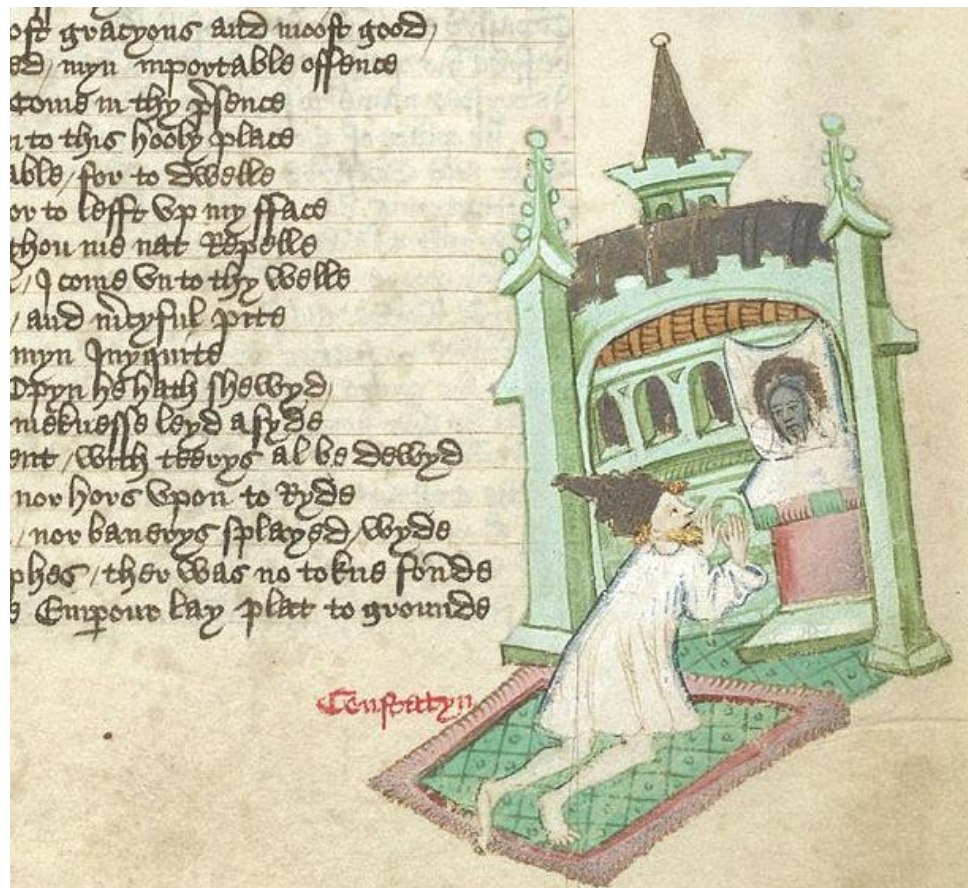 oste gracyous and moost good
ed, myn inportable offence
Come in thy p̄sence
n to this hooly place
able / for to dwelle
or to lefft vp my fface
thou me nat Repelle
/ I come vn to thy welle
/ and m̄cyful pite
myn Inyquite
Opyn he hath shewyd
mekenesse leyd asyde
ent / with teerys al be dewyd
nor hors vpon to Ryde
/ nor banerys splayed / wyde
phes / ther was no tokne fonde
e Emp̄our lay plat to grounde
Constantyn